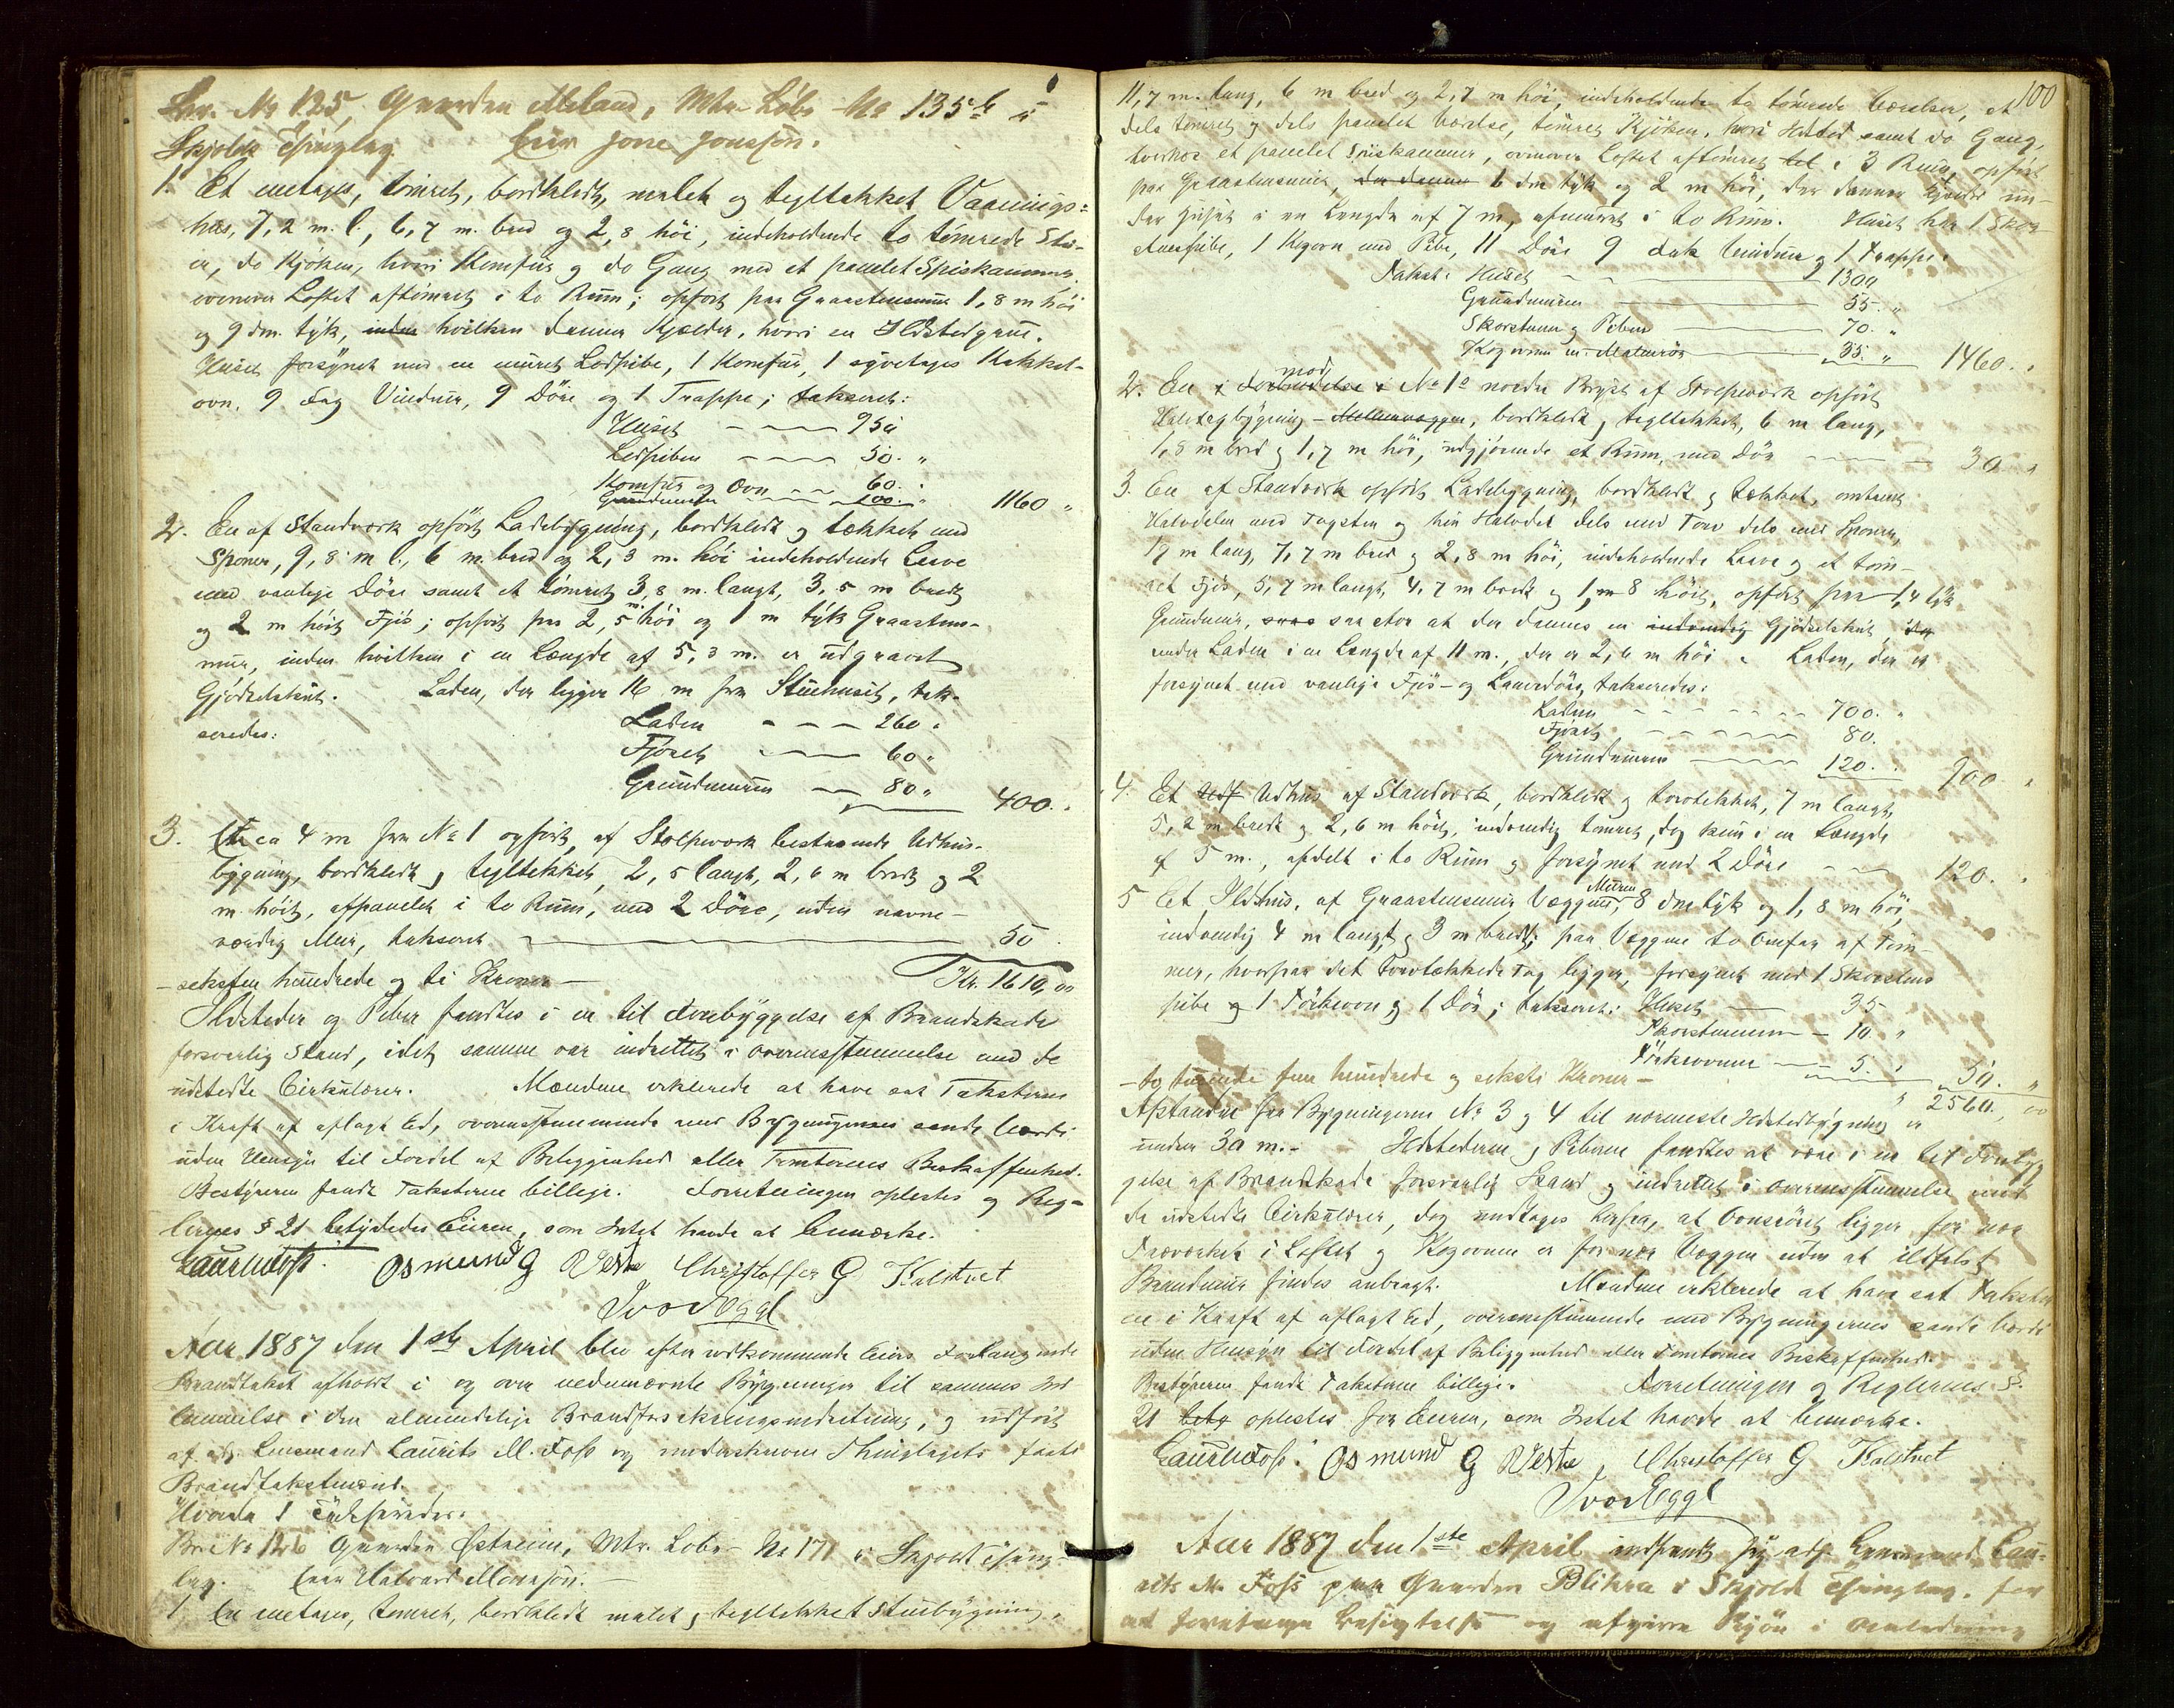 Br. No 125, Gaarden Meland, Mtr. Løbe No 135 b i
Skjolds Thinglag. Eier Jone Jonssøn.
1. Et enetages, tømret, bordklædt, malet og tegltækket Vaanings-
hus, 7,2 m. l., 6,7 m. bred og 2,8 høi, indeholdende to tømrede Stu-
er, do Kjøken, hvori Komfur og do Gang med et panelet Spiskammer,
ovenover Loftet aftømret i to Rum; opført paa Graastensmur 1,8 m høi
og 9 dm. tyk, inden hvilken dannes Kjælder, hvori en Ildstedgrue.
Huset forsynet med en muret Lodpibe, 1 Komfur, 1 toetages Kakkel-
ovn. 9 Fag Vinduer, 9 Døre og 1 Trappe; takseret:
Huset 950
Lodpiben 50. "
Komfur og Ovn 60. "
Grundmuren 100. " 1160 "
2. En af Standværk opført Ladebygning, bordklædt og tækket med
Sponer, 9,8 m l., 6 m. bred og 2,8 m. høi indeholdende Laave
med vanlige Døre samt et tømret 3,8 m. langt, 3,5 m bredt
og 2 m høit Fjøs; opført paa 2,5 m. høi og 1 m tyk Graastens-
mur, inden hvilken i en Længde af 5,3 m. er udgravet
Gjødselskut. Laden, der ligger 16 m fra Stuehuset, tak-
seredes:
Laden 260 "
Fjøset 60 "
Grundmuren 80 " 400. "
3. Et ca 4 m fra No 1 opført, af Stolpeværk bestaaende Udhus-
bygning, bordklædt og tegltækket, 2,5 langt, 2,6 m bredt og 2
m. høit, afpanelet i to Rum, med 2 Døre, uden nævne-
værdig Mur, takseret 50
- seksten hundrede og ti Kroner - Kr. 1610,00
Ildsteder og Piber fandtes i en til Forebyggelse af Brandskade
forsvarlig Stand, idet samme var indrettet i Overensstemmelse med de
udstedte Cirkulærer. Mændene erklærede at have sat Taksterne
i Kraft af aflagt Ed, overensstemmende med Bygningernes sande Værdi
uden Hensyn til Fordel af Beliggenhed eller Tomternes Beskaffenhed.
Bestyreren fandt Taksterne billige. Forretningen oplæstes og Reg-
lernes § 21 betydedes Eieren, som Intet havde at bemærke.
Laur. M Foss. Osmund G Vestre Christoffer G Kalstvet
Ivar Eggl
Aar 1887 den 1ste April blev efter vedkommende Eiers Forlangende
Brandtakst afholdt i og over nedennævnte Bygninger til sammes Ind-
lemmelse i den almindelige Brandforsikringsindretning, og udført
af adj. Lensmand Laurits M. Foss og underskrevne Thinglagets faste
Brandtakstmænd.
Br. No 126 Gaarden Østreim, Mtr. Løbe- No 171 i Skjold Thing-
lag. Eier Halvard Monssøn.
1. En enetages, tømret, bordklædt malet og tegltækket Stuebygning,
100
11,7 m. lang, 6 m bred og 2,7 m høi, indeholdende to tømrede Værelser, et
dels tømret og dels panelet Værelse, tømret Kjøken, hvori Ildsted samt do Gang,
hvorhos et panelet Spiskammer, ovenover Loftet aftømret til i 3 Rum, opført
paa Graastensmur, der danner 6 dm tyk og 2 m høi, der danner Kjælder un-
der Huset i en Længde af 7 m, afmuret i to Rum. Huset har 1 Skor-
stenspibe, 1 Kogovn med Pibe, 11 Døre 9 Fag Vinduer og 1 Trappe.
Takst: Huset 1300
Grundmuren 55. "
Skorstenen og Piben 70. "
Kogovnen m. Materør 35. " 1460. "
2. En i Forbindelse i mod No 1's nordre Bryst af Stolpeværk opført
Halvtagbygning - Mellemvæggen, bordklædt og tegltækket, 6 m lang,
1,8 m bred og 1,7 m høi, udgjørende et Rum, med Dør 30 "
3. En af Standværk opført Ladebygning, bordklædt og tækket, omtrent
Halvdelen med Tagsten og hin Halvdel dels med Torv dels med Sponer,
19 m lang, 7,7 m bred og 2,8 m høi, indeholdende Laave og et tøm-
ret Fjøs, 5,7 m langt, 4,7 m bredt og 1, m 8 høit, opført paa 1,4 tyk
Grundmur, saa stor at der dannes en indvendig Gjødselskut
under Laden i en Længde af 11 m., der er 2,6 m høi. Laden, der er
forsynet med vanlige Fjøs- og Laavedøre, takseredes:
Laden 700. "
Fjøset 80.
Grundmuren 120. " 900 "
4. Et Udf Udhus af Standværk, bordklædt og torvtækket, 7 m langt,
5,2 m bredt og 2,6 m høit, indvendig tømret, dog kun i en Længde
af 5 m., afdelt i to Rum og forsynet med 2 Døre 120. "
5 Et Ildhus, af Graastensmur Væggene Muren, 8 dm tyk og 1,8 m høi,
indvendig 4 m langt og 3 m bredt; paa Væggene to Omfar af Tøm-
mer, hvorpaa det torvtækkede Tag ligger, forsynet med 1 Skorstens
pibe og 1 Tørkeovn og 1 Dør; takseret: Huset 35
Skorstenen 10 "
Tørkeovnen 5. " 50. "
- to tusinde fem hundrede og seksti Kroner - " 2560,00
Afstanden fra Bygningerne No 3 og 4 til nærmeste Ildstedbygning er
under 30 m. - Ildstederne og Piberne fandtes at være i en til Foreby-
gelse af Brandskade forsvarlig Stand og indrettet i Overensstemmelse med
de udstedte Cirkulærer, dog undtages herfra, at Ovnsrøret ligger for nær
Træværket i Loftet og Kogovnen er for nær Væggen uden at ildfast
Brandmur findes anbragt. Mændene erklærede at have sat Takster
ne i Kraft af aflagt Ed, overensstemmende med Bygningernes sande Værdi
uden Hensyn til Fordel af Beliggenhed eller Tomternes Beskaffenhed.
Bestyreren fandt Taksterne billige. Forretningen og Reglernes §.
21 bety oplæstes for Eieren, som Intet havde at bemærke.
Laur. M Foss. Osmund G Vestre, Christoffer G Kalstvet
Ivar Eggl
Aar 1887 den 1ste April indfandt sig adj. Lensmand Lau-
rits M. Foss paa Gaarden Blikra i Skjold Thinglag, for
at foretage Besigtelse og afgive Skjøn i Anledning